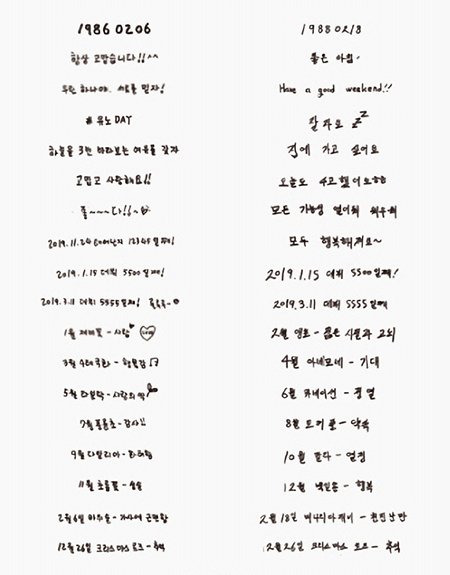 1986 02 06
항상 고맙습니다!!^^
우린 하나야. 서로를 믿자!
# 유노 DAY
하늘을 3번 바라보는 여유를 갖자
고맙고 사랑해요!!
2019.11.24 태어난지 12345일째!
2019.1.15 데뷔 5500일째!
2019.3.11 데뷔 5555일째!
1월 제비꽃 - 사랑
3월 수레국화 - 행복감
5월 - 사랑의 싹
7월 - 감사
9월 다알리아 - 화려함
11월 초롱꽃 - 성실
2월 6일 바위솔 - 가사에 근면함
12월 26일 크리스마스 로즈 - 추억
1988 02 18
좋은 아침.
Have a good weekend!!
잘자요 zzZ
집에 가고 싶어요
오늘도 수고했어요
모든 가능성 열어둬
모두 행복해져요~
2019.1.15 데뷔 5500일째!
2019.3.11 데뷔 5555일째
2월 앵초 - 젊은 시절과 고뇌
4월 아네모네 - 기대
6월 카네이션 - 정열
8월 - 약속
10월 - 열정
12월 백일홍 - 행복
2월 18일 미나리아재비 - 천진난만
12월 26일 크리스마스 로즈 - 추억